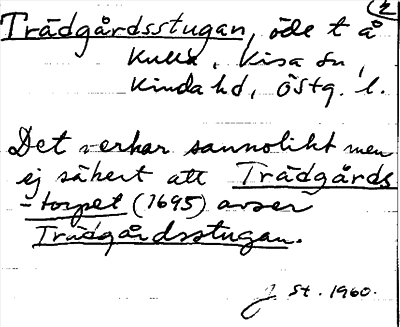 2
Trädgårdsstugan, öde t å
Kulla, Kisa sn,
Kinda hd, Östg. l.
Det verkar sannolikt men
ej säkert att Trädgårds
-torpet (1695) avser
Trädgårdsstugan.
J. St. 1960.